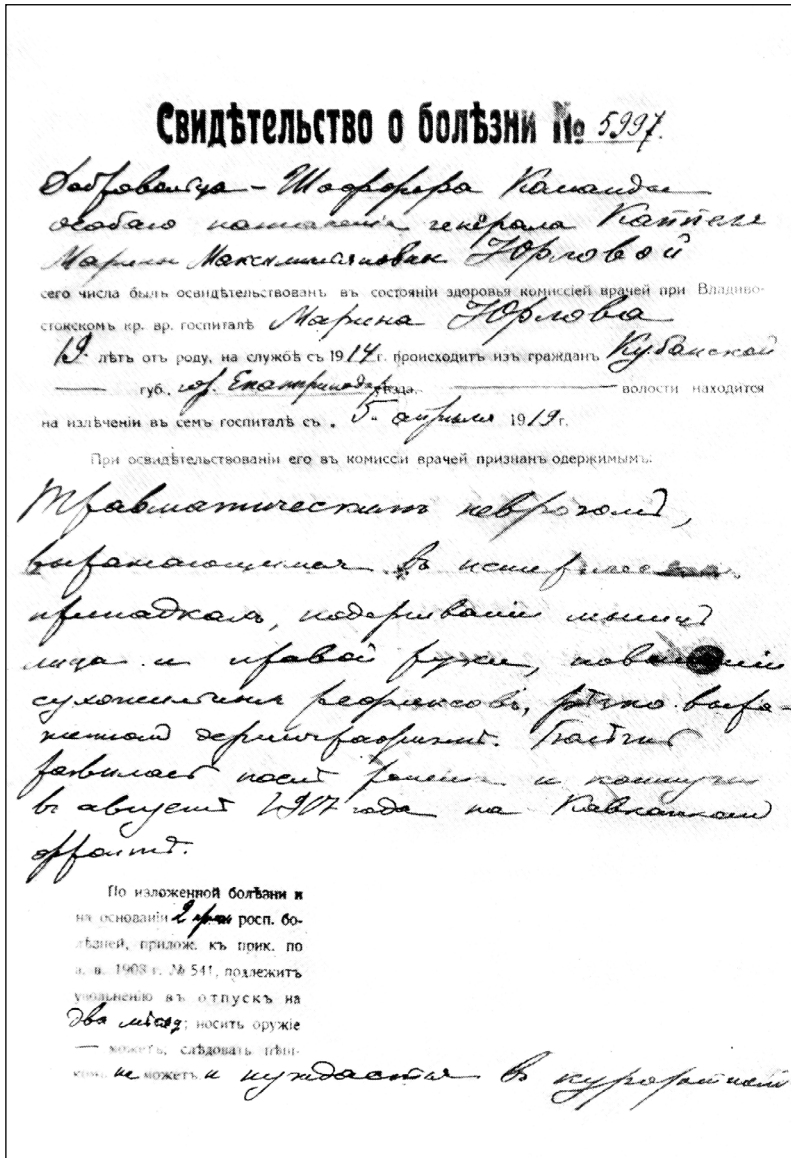 Свидѣтельство о болѣзни № 5997.
Добровольца – Шоффера Команды
особаго назначенія генерала Каппеля
Марины Максимилiановны Юрловой
сего числа былъ освидѣтельствованъ въ состояніи здоровья комиссіей врачей при Владиво-
стокскомъ кр. вр. госпиталѣ Марина Юрлова
19 лѣтъ отъ роду, на службѣ съ 1914 г. происходитъ изъ гражданъ Кубанской
губ., гор. Екатеринодар уѣзда, волости находится
на излѣченіи въ семъ госпиталѣ съ 5 апрѣля 1919 г.
При освидѣтельствованіи его въ комиссіи врачей признанъ одержимымъ:
Травматическимъ неврозомъ,
выражающимся въ истерическихъ
припадкахъ, подергиваніи мышцъ
лица и правой руки, повышеніи
сухожильныхъ рефлексовъ, рѣзко выра-
женномъ дермографизмѣ. Болѣзнь
развилась послѣ раненія и контузіи
въ августѣ 1917 года на Кавказскомъ
фронтѣ.
По изложенной болѣзни и
на основаніи 2 росп. бо-
лѣзней, прилож. къ прик. по
в. в. 1908 г. № 541, подлежитъ
увольненію въ отпускъ на
два мѣсяц; носить оружіе
— можетъ, слѣдовать пѣш-
комъ не можетъ и нуждается въ курортномъ